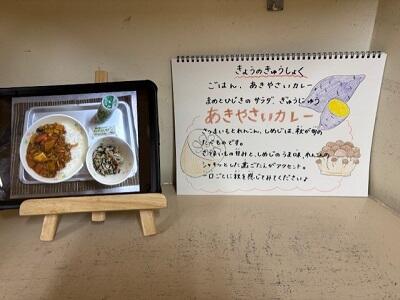 きょうのきゅうしょく
ごはん、あきやさいカレー
まめとひじきのサラダ、ぎゅうにゅう
あきやさいカレー
さつまいもとれんこん、しめじは、秋が旬の
たべものです。
さつまいもの甘みと、しめじのうまみ、れんこんの
シャキッとした歯ごたえがアクセント。
一口ごとに秋を感じてみてください♪